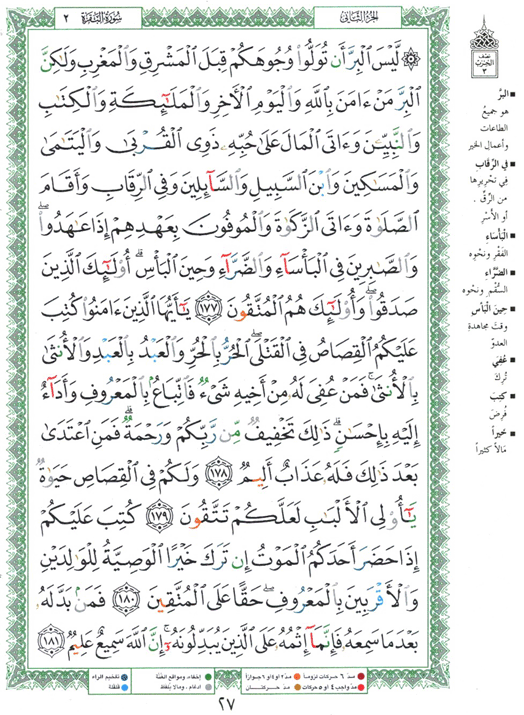 الجزء الثاني
سورة البقرة ٢
نصف
الحزب
٣
لَّيْسَ ٱلْبِرَّ أَن تُوَلُّوا۟ وُجُوهَكُمْ قِبَلَ ٱلْمَشْرِقِ وَٱلْمَغْرِبِ وَلَٰكِنَّ
ٱلْبِرَّ مَنْ ءَامَنَ بِٱللَّهِ وَٱلْيَوْمِ ٱلْءَاخِرِ وَٱلْمَلَٰٓئِكَةِ وَٱلْكِتَٰبِ
وَٱلنَّبِيِّـۧنَ وَءَاتَى ٱلْمَالَ عَلَىٰ حُبِّهِۦ ذَوِى ٱلْقُرْبَىٰ وَٱلْيَتَٰمَىٰ
وَٱلْمَسَٰكِينَ وَٱبْنَ ٱلسَّبِيلِ وَٱلسَّآئِلِينَ وَفِى ٱلرِّقَابِ وَأَقَامَ
ٱلصَّلَوٰةَ وَءَاتَى ٱلزَّكَوٰةَ وَٱلْمُوفُونَ بِعَهْدِهِمْ إِذَا عَٰهَدُوا۟ ۖ
وَٱلصَّٰبِرِينَ فِى ٱلْبَأْسَآءِ وَٱلضَّرَّآءِ وَحِينَ ٱلْبَأْسِ ۗ أُو۟لَٰٓئِكَ ٱلَّذِينَ
صَدَقُوا۟ ۖ وَأُو۟لَٰٓئِكَ هُمُ ٱلْمُتَّقُونَ ١٧٧ يَٰٓأَيُّهَا ٱلَّذِينَ ءَامَنُوا۟ كُتِبَ
عَلَيْكُمُ ٱلْقِصَاصُ فِى ٱلْقَتْلَى ۖ ٱلْحُرُّ بِٱلْحُرِّ وَٱلْعَبْدُ بِٱلْعَبْدِ وَٱلْأُنثَىٰ
بِٱلْأُنثَىٰ ۚ فَمَنْ عُفِىَ لَهُۥ مِنْ أَخِيهِ شَىْءٌ فَٱتِّبَاعٌۢ بِٱلْمَعْرُوفِ وَأَدَآءٌ
إِلَيْهِ بِإِحْسَٰنٍ ۗ ذَٰلِكَ تَخْفِيفٌ مِّن رَّبِّكُمْ وَرَحْمَةٌ ۗ فَمَنِ ٱعْتَدَىٰ
بَعْدَ ذَٰلِكَ فَلَهُۥ عَذَابٌ أَلِيمٌ ١٧٨ وَلَكُمْ فِى ٱلْقِصَاصِ حَيَوٰةٌ
يَٰٓأُو۟لِى ٱلْأَلْبَٰبِ لَعَلَّكُمْ تَتَّقُونَ ١٧٩ كُتِبَ عَلَيْكُمْ
إِذَا حَضَرَ أَحَدَكُمُ ٱلْمَوْتُ إِن تَرَكَ خَيْرًا ٱلْوَصِيَّةُ لِلْوَٰلِدَيْنِ
وَٱلْأَقْرَبِينَ بِٱلْمَعْرُوفِ ۖ حَقًّا عَلَى ٱلْمُتَّقِينَ ١٨٠ فَمَنۢ بَدَّلَهُۥ
بَعْدَمَا سَمِعَهُۥ فَإِنَّمَآ إِثْمُهُۥ عَلَى ٱلَّذِينَ يُبَدِّلُونَهُۥٓ ۚ إِنَّ ٱللَّهَ سَمِيعٌ عَلِيمٌ ١٨١
البرّ
هو جميعُ
الطاعات
وأعمال الخير
في الرّقاب
في تحريرها
من الرّق
أو الأسْر
البأساء
الفقر ونحوه
الضرّاء
السُّقم ونحوه
حين البأس
وقت مجاهدة
العدوّ
عُفي
تُرِك
كُتبَ
فُرِضَ
خيراً
مالاً كثيراً
مدّ ٦ حركات لزوماً
مدّ ٢ أو ٤ أو ٦ جوازاً
إخفاء، ومواقع الغنّة
تفخيم الراء
مدّ واجب ٤ أو ٥ حركات
مدّ حركتان
إدغام، وما لا يُلفظ
قلقلة
٢٧